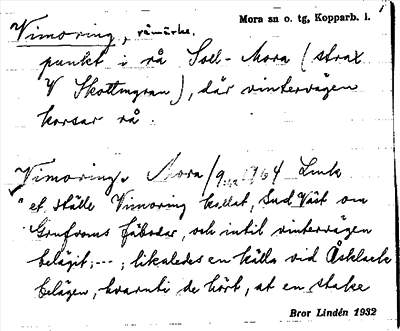 Mora sn o. tg, Kopparb. l.
Vimoring, råmärke.
punkt i rå Soll- Mora (strax
V Skottmgran), där vintervägen
korsar rå.
Vimoring Mora / 1764 Lmk
"et ställe Vimoring kallat, Sud Väst om
Grufvoms fäbodar, och intil vintervägen
belägit; --- ; likaledes en källa vid Åsklack
belägen, hvaruti de hört, at en stake
Bror Lindén 1932